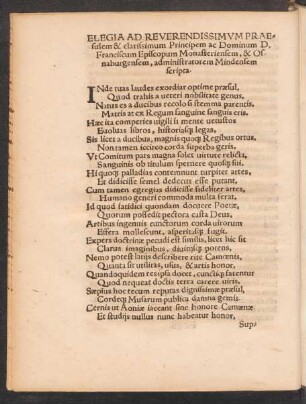 ELEGIA AD REVERENDISSIMVM PRAE-
sulem & clarissimum Principem ac Dominum D.
Franciscum Episcopum Monasteriensem, & Os-
naburgensem, administratorem Mindensem
scripta.
INde tuas laudes exordiar optime præsul,
Quod trahis a ueteri nobilitate genus,
Natus es a ducibus reco lo si stemma parentis,
Matris at ex Regum sanguine sanguis eris.
Hæc ita comperies uigili si mente uetustos
Euoluas libros, historiasq; legas,
Sis licet a ducibus, magnis quoq; Regibus ortus,
Non tamen iccirco corda superba geris.
Vt Comitum pars magna solet uirtute relicta,
Sanguinis ob titulum spernere quosq; sui.
Hi quoq; palladias contemnunt turpiter artes,
Et didicisse semel dedecus esse putant.
Cum tamen egregias didicisse fideliter artes,
Humano generi commoda multa ferat,
Id quod fatidici quondam docuere Poetæ,
Quorum possedit pectora casta Deus,
Artibus ingenuis cunctorum corda uirorum
Effera mollescunt, asperitasq; fugit.
Expers doctrinæ pecudi est similis, licet hic sit
Clarus imaginibus, diuitijsq; potens,
Nemo potest latijs describere rite Camœnis,
Quanta sit utilitas, usus, & artis honor,
Quandoquidem res ipsa docet, cunctisq; fatentur
Quod nequeat doctis terra carere uiris.
Sæpius hoc tecum reputas dignissime præsul,
Cordeq; Musarum publica damna gemis.
Cernis ut Aoniæ iaceant sine honore Camœnæ
Et studijs nullus nunc habeatur honor,
Sup/